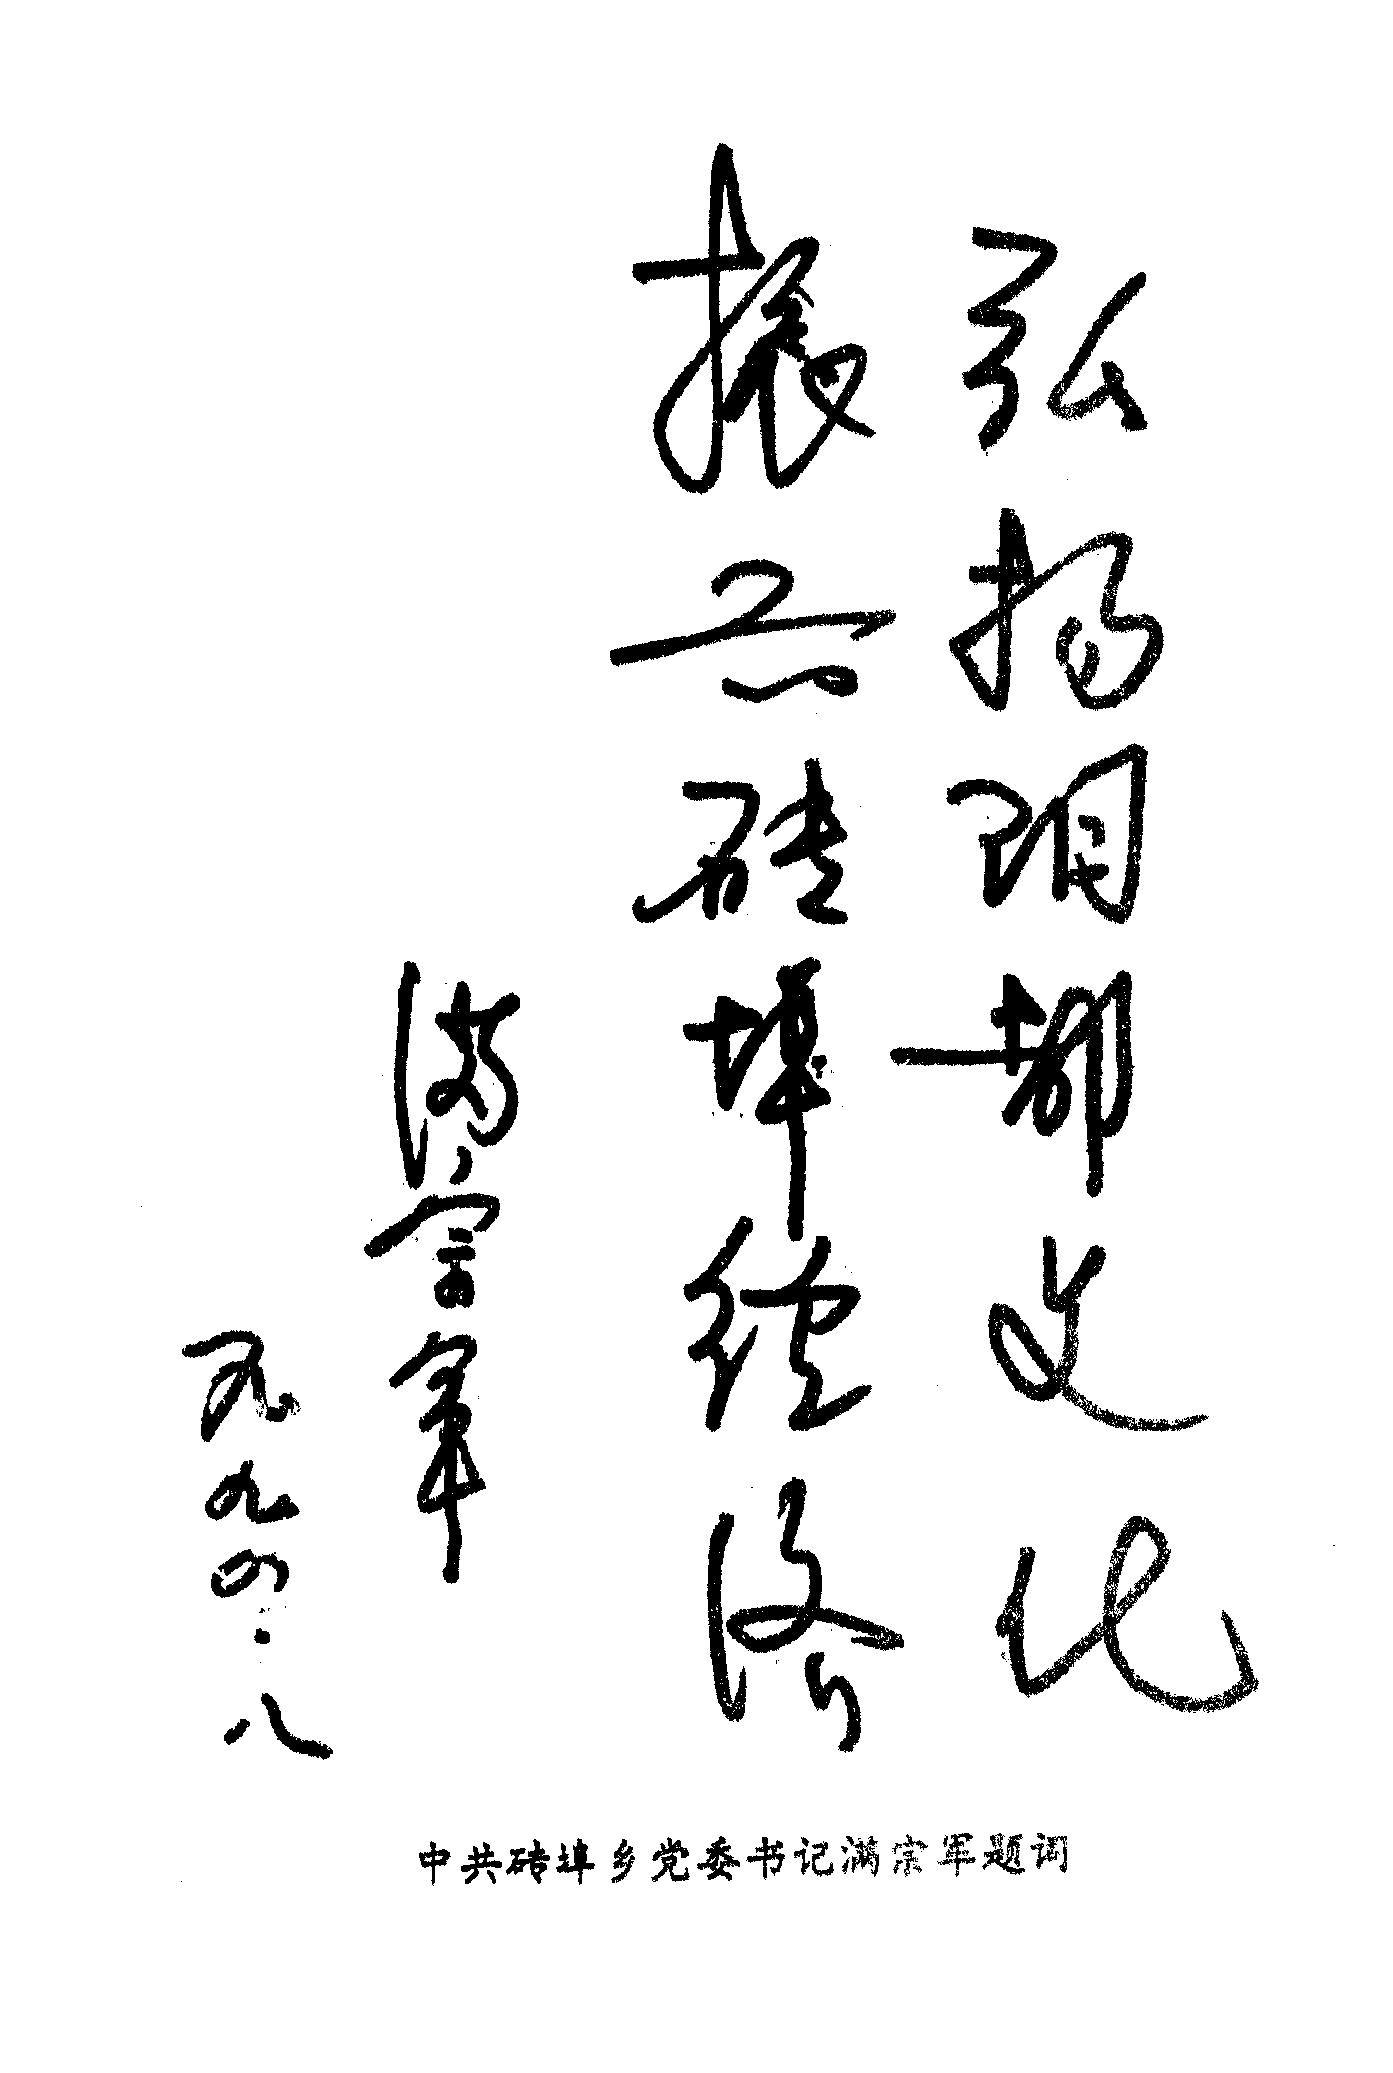 弘扬阳都文化
振兴砖埠经济
满宗军
一九九四.八
中共砖埠乡党委书记满宗军题词